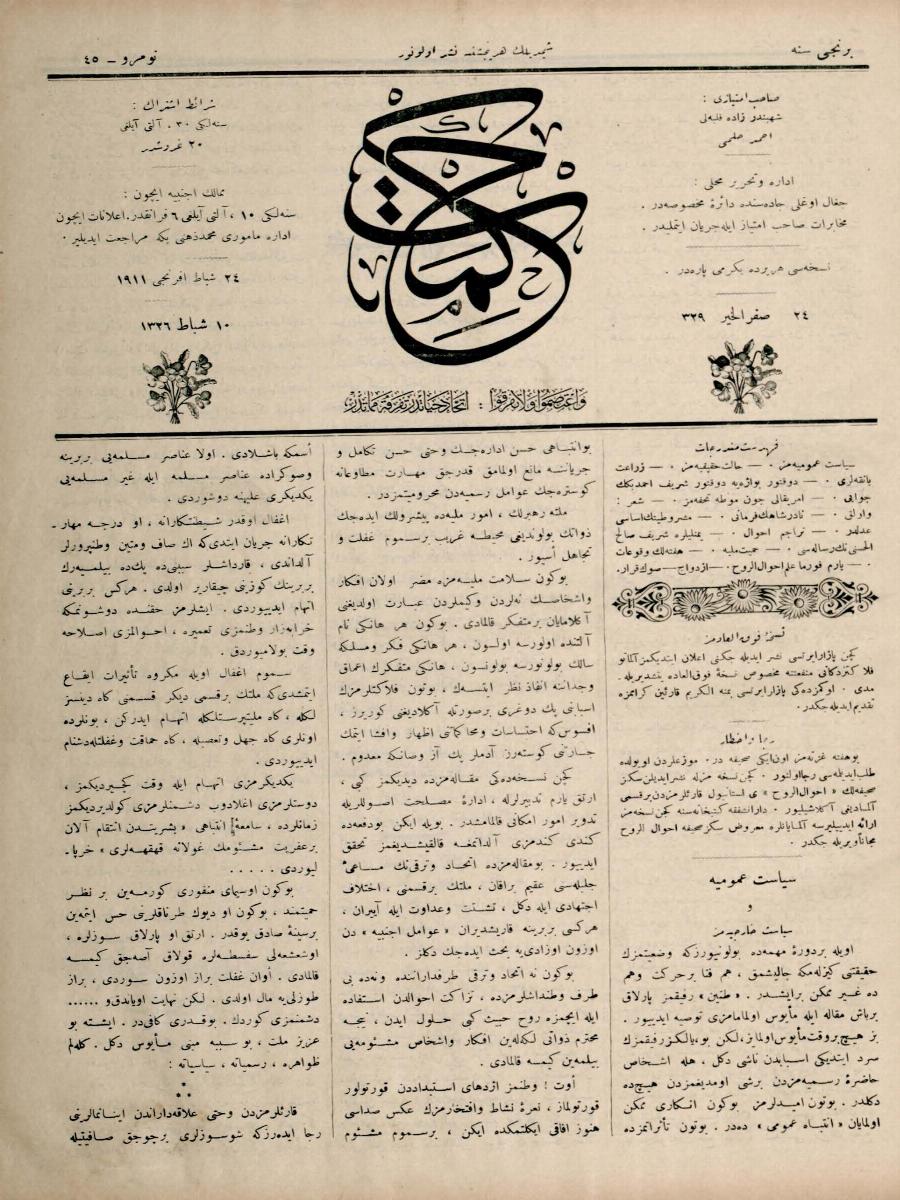 برنجی سنه
شمدیلك هر پنجشنبه نشر اولونور
نومرو – ٤٥
صاحب امتیازی :
شهبندر زاده فلبه‌لی
احمد حلمی
اداره و تحریر محلی :
جغال اوغلی جاده‌سنده دائرهٔ مخصوصه‌در .
مخابرات صاحب امتیاز ایله جریان ایتملیدر .
نسخه‌سی هر یرده یكرمی پاره‌در .
٢٤ صفر الخیر ٣٢٩
حكمت
واعتصموا ولا تفرقوا : اتحاد حیاتدر تفرقه مماتدر
شرائط اشتراك :
سنه‌لكی ٣٠ ، آلتی آیلغی
٢٠ غروشدر
ممالك اجنبیه ایچون :
سنه‌لكی ١٠ ، آلتی آیلغی ٦ فرانقدر . اعلانات ایچون
اداره ماموری محمد ذهنی بكه مراجعت ایدیلیر .
٢٤ شباط افرنجی ١٩١١
١٠ شباط ١٣٢٦
فهرست مندرجات
سیاست عمومیه‌مز . — حالت حقیقیه‌مز . — زراعت
بانقه‌لری . — دوقتور بواژه‌یه دوقتور شریف احمد بكك
جوابی . — امریقالی جون موطه تحفه‌مز . — شعر :
واولانی . — نادرشاهك فرمانی . — مشروطیتك اساسی
عدلدر . — تراجم احوال . — یمنلیلره شریف صالح
الحسنی نك رساله‌سی . — حمیت ملیه . — هفته‌لك وقوعات
. — یارم فورما علم احوال الروح . — ازدواج — صوك قرار .
نسخهٔ فوق العاده‌مز
كچن پازار ایرتسی نشر ایدیله جكنی اعلان ایتدیكمز آلماتو
فلاكتزدكانی منفعتنه مخصوص نسخهٔ فوق العاده یتشدیریله ـ
مدی . اوكمزده‌كی پازار ایرتسی بمنه الكریم قارئین كرامزه
تقدیم ایدیله جكدر .
رجا و اخطار
بوهفته غزته‌مز اون ایكی صحیفه در . موزعلردن اویولده
طلب ایدیلمه‌سی رجا اولنور . كچن نسخه مزله نشر ایدیلن سكز
صحیفه‌لك « احوال الروح » ی استانبول قارئلرمزدن برقسمی
آلمادیغی آكلاشیلیور . دار الشفقه كتبخانه‌سنه كچن نسخه‌مز
ارائه ایدیلیرسه آلمایانلره معروض سكز صحیفه احوال الروح
مجاناً ویریله جكدر .
سیاست عمومیه
و
سیاست خارجیه‌مز
اویله بردورهٔ مهمه‌ده بولونیورزكه وضعیتمزك
حقیقتنی كیزله‌مكه چالیشمق ، هم فنا برحركت وهم
ده غیر ممكن برایشدر . « طنین » رفیقمز پارلاق
برباش مقاله ایله مأیوس اولمامامزی توصیه ایدییور .
بز هیچ بروقت مأیوس اولمایز ، لكن بو ، یالكز رفیقمزك
سرد ایتدیكی اسبابدن ناشی دكل ، هله اشخاص
حاضرهٔ رسمیه‌مزدن برشی اومدیغمزدن هیچ ده
دكلدر . بوتون امیدلرمز بوكون انكاری ممكن
اولمایان « انتباه عمومی » ده‌در . بوتون تأثراتمزده
بوانتباهی حسن اداره‌جك وحتی حسن تكامل و
جریاننه مانع اولمامق قدرجق مهارت مطاوعانه
كوستره‌جك عوامل رسمیه‌دن محرومیتمزدر .
ملته رهبرلك ، امور ملیه‌ده پیشرولك ایده‌جك
ذواتك بولوندیغی محیطه غریب برسموم غفلت و
تجاهل اَسیور .
بوكون سلامت ملیه‌مزه مضر اولان افكار
واشخاصك نه‌لردن وكیملردن عبارت اولدیغنی
آكلامایان برمتفكر قالمادی . بوكون هر هانكی نام
آلتنده اولورسه اولسون ، هر هانكی فكر ومسلكه
سالك بولونورسه بولونسون ، هانكی متفكرك اعماق
وجداننه انفاذ نظر ایتسه‌ك ، بوتون فلاكتلرمزك
اسبابنی پك دوغری برصورتله آكلادیغنی كوریرز ،
افسوس كه احتساسات ومحاكماتنی اظهار وافشا ایتمك
جسارتنی كوسترز آدملر پك آز وصانكه معدوم .
كچن نسخه‌ده‌كی مقاله‌مزده دیدیكمز كبی ،
ارتق یارم تدبیرلرله ، ادارهٔ مصلحت اصوللریله
تدویر امور امكانی قالمامشدر . بویله ایكن بودفعه‌ده
كندی كندمزی آلداتمغه قالقیشدیغمز تحقق
ایدییور . بومقاله‌مزده اتحاد وترقی نك مساعیٔ
جلیله‌سنی عقیم براقان ، ملتك برقسمنی ، اختلاف
اجتهادی ایله دكل ، تشتت وعداوت ایله آییران ،
هركسی بربرینه قاریشدیران « عوامل اجنبیه » دن
اوزون اوزادی‌یه بحث ایده‌جك دكلز .
بوكون نه اتحاد وترقی طرفدارانندە ونه‌ده بی
طرف وطنداشلرمزده ، نزاكت احوالدن استفاده
ایله ایچمزه روح خبیث كبی حلول ایدن ، نیجه
محترم ذواتی لكه‌له‌ین افكار واشخاص مشئومه‌یی
بیلمه‌ین كیمسه قالمادی .
أوت ! وطنمز اژدهای استبداددن قورتولور
قورتولماز ، نعرهٔ نشاط وافتخارمزك عكس صداسی
هنوز آفاقی ایكلتمكده ایكن ، برسموم مشئوم
أسمكه باشلادی . اولا عناصر مسلمه‌یی بربرینه
وصوكراده عناصر مسلمه ایله غیر مسلمه‌یی
یكدیكری علیهنه دوشوردی .
اغفال اوقدر شیطنتكارانه ، او درجه مهار ـ
تكارانه جریان ایتدی كه اك صاف ومتین وطنپرورلر
آلداندی ، قارداشلر سببنی ده پك ده بیلمیه‌رك
بربرینك كوزینی چیقاریر اولدی . هركس بربرینی
اتهام ایدییوردی . ایشلرمز حقنده دوشونمكه
خرابه‌زار وطنمزی تعمیره ، احوالمزی اصلاحه
وقت بولامیوردق .
سموم اغفال اویله مكروه تأثیرات ایقاع
ایتمشدی كه ملتك برقسمی دیكر قسمنی كاه دینسز
لكله ، كاه ملیتپرستلكله اتهام ایدركن ، بونلرده
اونلری كاه جهل وتعصبله ، كاه حماقت وغفلتله دشنام
ایدییوردی .
یكدیكرمزی اتهام ایله وقت كچیردیكمز ،
دوستلرمزی اغلادوب دشمنلرمزی كولدیردیكمز
زمانلرده ، سامعهٔ انتباهی « بشریتدن انتقام آلان
برعفریت مشئومك غولانه قهقهه‌لری » خرپا ـ
لیوردی . . . . .
بوكون اوسیمای منفوری كورمه‌ین بر نظر
حمیتمند ، بوكون او دیوك طرناقلرینی حس ایتمه‌ین
برسینهٔ صادق یوقدر . ارتق او پارلاق سوزلره ،
اوشعشعه‌لی سفسطه‌لره قولاق آصه‌جق كیمسه
قالمادی . أوان غفلت براز اوزون سوردی ، براز
طوزلی یه مال اولدی . لكن نهایت اویاندق و ......
دشمنزی كوردك . بوقدری كافی در . ایشته بو
عزیز ملت ، بوسببه مبنی مأیوس دكل . كله‌لم
ظواهره ، رسمیاته ، سیاسیاته :
* * *
قارئلرمزدن وحتی علاقه‌داراندن اینانمالرینی
رجا ایدەرزكه شوسوزلری برچوجق صافیتیله